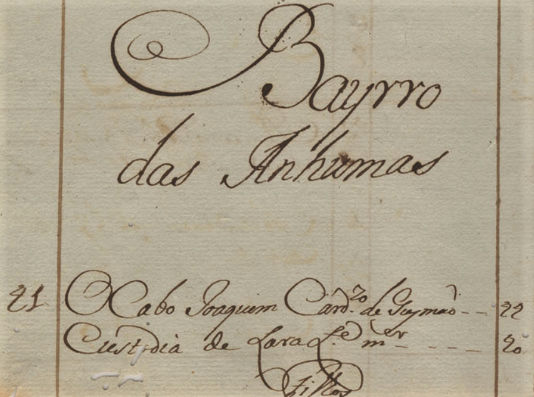 Bayrro
das Anhumas
21 O Cabo Joaquim Card.zo de Guymaõ -- 22
Custodia de Lara L.e m.er ---- 20
Filhos